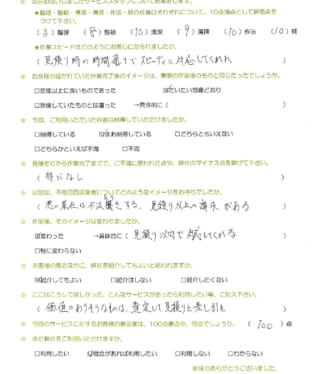 つけて下さい。
(8) 整理 (8) 整頓 (10) 清潔 (9) 清掃 (10) 作法 (10) 躾
★作業スピードはどのようにお感じになられましたか。
(見積り時の時間通りでスピーディに対応してくれた
☆ お客様の描かれていた作業完了後のイメージは、実際の作業後のものと同じだったでしょうか。
□想像以上に良いものであった ☑だいたい想像どおり
□想像していたものとは違った →具体的に( )
☆ 今回、ご利用いただいた料金は納得していただけましたか。
□納得している ☑まあ納得している □どちらともいえない
□どちらかといえば不満 □不満
☆ 見積もりから作業完了までで、ご不満に思われた点や、弊社のマイナス点を挙げて下さい。
(特になし )
☆ 以前は、不用品回収業者についてどのようなイメージをお持ちでしたか。
(悪い業者は不法 する、見積り以上の請求がある)
☆ 作業後、そのイメージは変わりましたか。
☑変わった →具体的に(見積り以内で対応してくれる)
□特に変わらない
☆ お客様の身近な方に、弊社を紹介してもよいと思われますか。
☑紹介してもよい □紹介はしない □紹介したくない
☆ ここはこうしてほしかった、こんなサービスがあったら利用したい等、ご記入下さい。
(価値のありそうなものは、査定して見積りと差し引き)
☆ 今回のサービスに対するお客様の満足度は、100点満点中、何点でしょうか。 (100)点
☆ また弊社をご利用いただけますか。
□利用したい ☑機会があれば利用したい □利用しない □わからない
ご協力ありがとうございました。